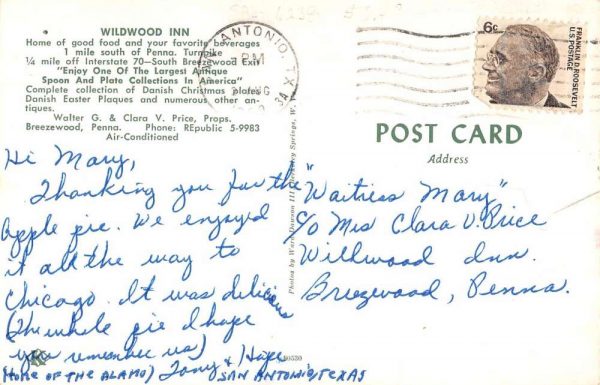 WILDWOOD INN
Home of good food and your favorite beverages
1 mile south of Penna. Turnpike
¼ mile off Interstate 70—South Breezewood Exit
"Enjoy One Of The Largest Antique
Spoon And Plate Collections In America"
Complete collection of Danish Christmas plates
Danish Easter Plaques and numerous other an-
tiques.
Walter G. & Clara V. Price, Props.
Breezewood, Penna. Phone: REpublic 5-9983
Air-Conditioned
SAN ANTONIO, TX
PM
AUG
6c
FRANKLIN D. ROOSEVELT
U.S. POSTAGE
POST CARD
Address
Hi Mary,
Thanking you for the
apple pie. We enjoyed
it all the way to
Chicago. It was delicious
(The whole pie I hope
you remember us)
Tony & Hope
(HOME OF THE ALAMO) SAN ANTONIO, TEXAS
"Waitress Mary"
c/o Mrs Clara V. Price
Wildwood Inn.
Breezewood, Penna.
Photos by Ward Dawson III, Berkeley Springs, W.